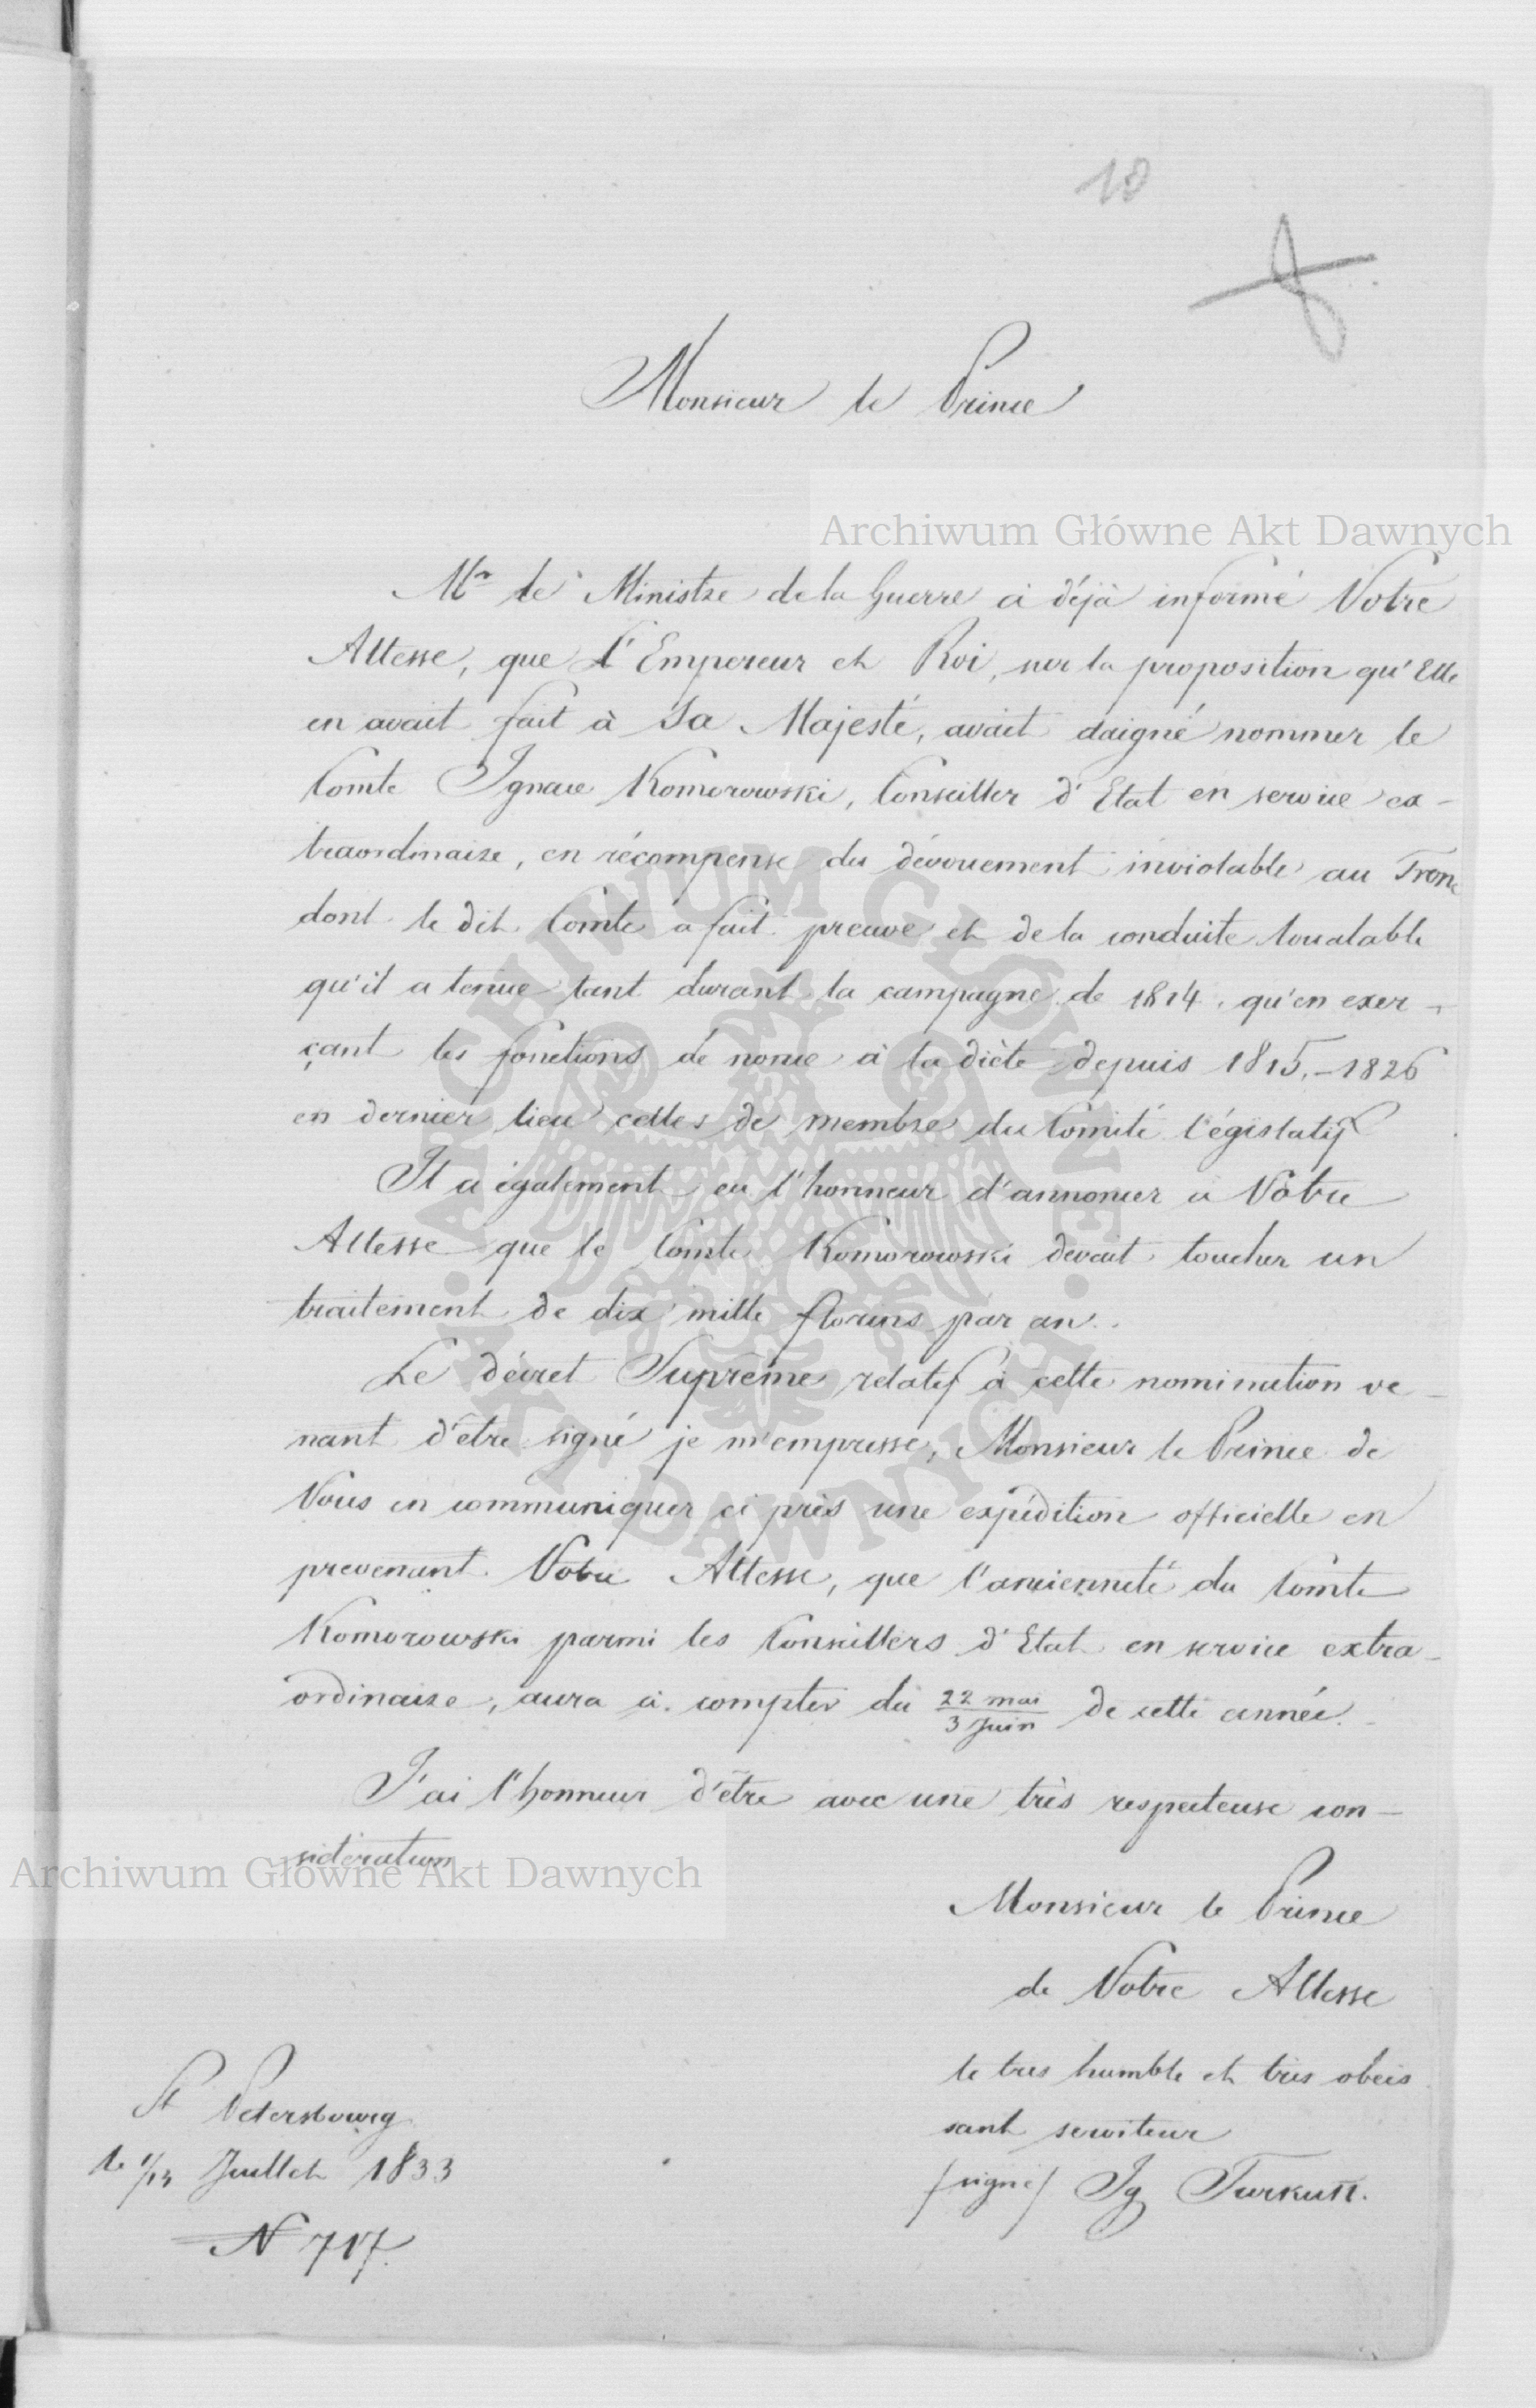 10
Monsieur le Prince
Archiwum Główne Akt Dawnych
Mr le Ministre de la Guerre a déjà informé Votre
Altesse, que l'Empereur et Roi, sur la proposition qu'Elle
en avait fait à Sa Majesté, avait daigné nommer le
Comte Ignace Komorowski, Conseiller d'Etat en service ex-
traordinaire, en récompense du dévouement inviolable au Trone
dont le dit Comte a fait preuve et de la conduite loualable
qu'il a tenue tant durant la campagne de 1814, qu'en exer-
çant les fonctions de nonce à la diète depuis 1815,-1826
en dernier lieu celles de membre du Comité Législatif
Il a également eu l'honneur d'annoncer à Votre
Altesse que le Comte Komorowski devait toucher un
traitement de dix mille florins par an.
Le décret Suprême relatif à cette nomination ve-
nant d'être signé je m'empresse, Monsieur le Prince de
Vous en communiquer ci près une expédition officielle en
prevenant Votre Altesse, que l'ancienneté du Comte
Komorowski parmi les Conseillers d'Etat en service extra-
ordinaire, aura à compter du 22 mai / 3 Juin de cette année.
J'ai l'honneur d'être avec une très respecteuse con-
sidération
Archiwum Główne Akt Dawnych
Monsieur le Prince
de Votre Altesse
le tres humble et tres obeis
sant serviteur
/signé/ Ig Turkułł.
St Petersbourg
le 1/13 Juillet 1833
N 717.
ARCHIWUM GŁÓWNE
AKT DAWNYCH